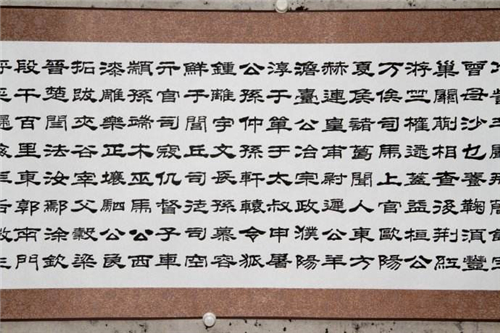 曾毋沙乜養鞠須豐
巢關蒯相查後荊紅
游竺權逯蓋益桓公
万俟司馬上官歐陽
夏侯諸葛聞人東方
赫連皇甫尉遲公羊
澹臺公冶宗政濮陽
淳于單于太叔申屠
公孫仲孫軒轅令狐
鍾離宇文長孫慕容
鮮于閭丘司徒司空
亓官司寇仉督子車
顓孫端木巫馬公西
漆雕樂正壤駟公良
拓跋夾谷宰父穀梁
晉楚閆法汝鄢涂欽
段干百里東郭南門